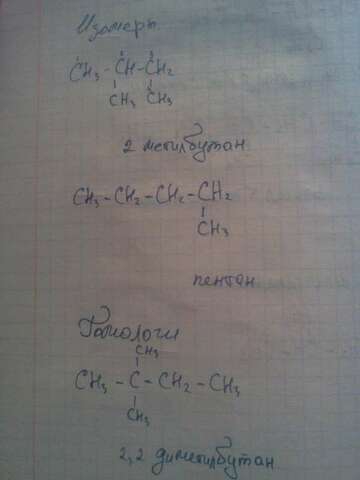 Изомеры
CH₃ - CH - CH₂
CH₃ CH₃
2 метилбутан
CH₃ - CH₂ - CH₂ - CH₂
CH₃
пентан
Гомологи
CH₃
CH₃ - C - CH₂ - CH₃
CH₃
2,2 диметилбутан